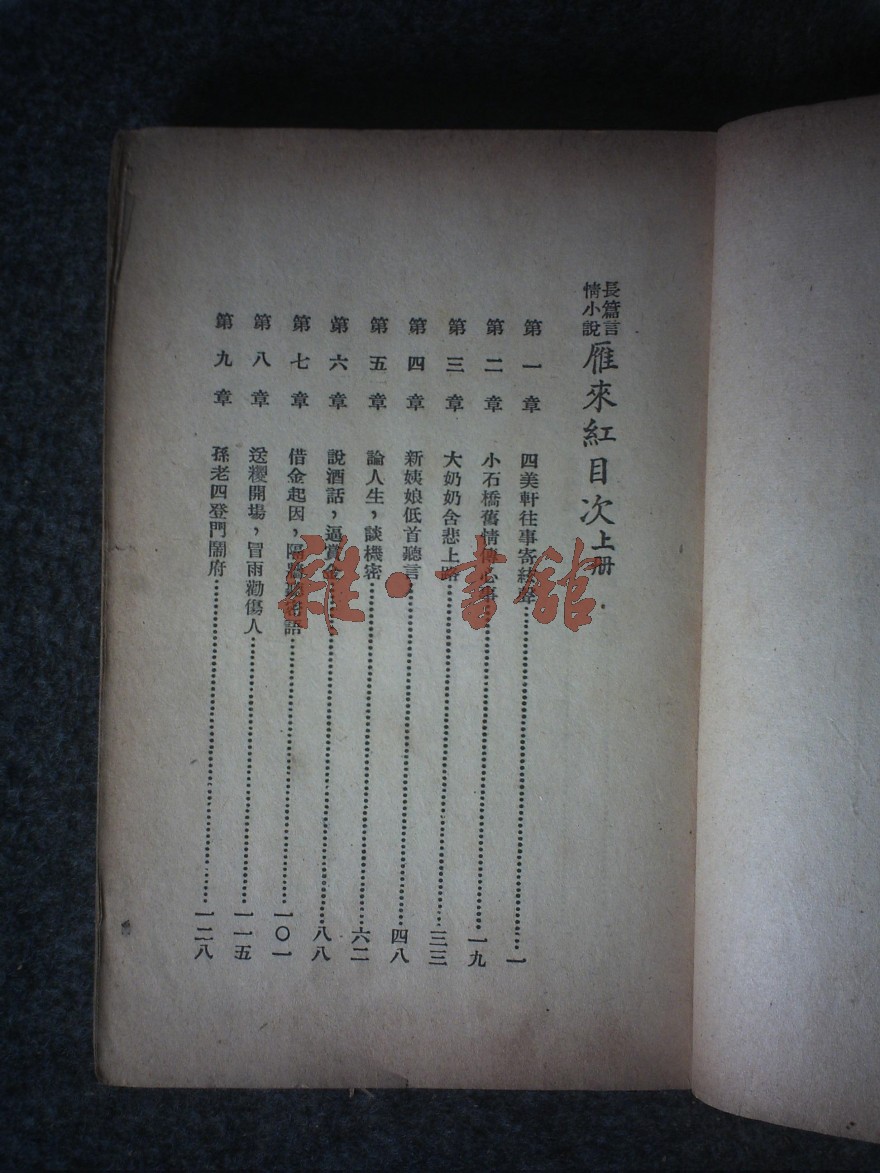 長篇言情小說 雁來紅目次上册
第一章 四美軒往事寄絃聲 一
第二章 小石橋舊情傳心事 一九
第三章 大奶奶含悲上路 三三
第四章 新姨娘低首聽言 四八
第五章 論人生，談機密 六二
第六章 說酒話，逼賞金 八八
第七章 借金起因，隔牆聽密語 一〇一
第八章 送櫻開場，冒雨勸傷人 一一五
第九章 孫老四登門鬧府 一二八
雜·書館